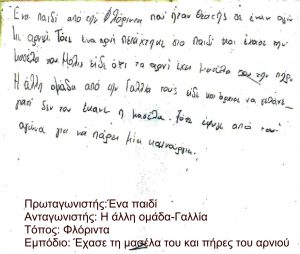 Ένα παιδί από την Φλόριντα που ήταν θεατής σε έναν αγώνα
με αρνιά. Τότε ένα αρνί πετάχτηκε στο παιδί και έχασε την
μασέλα του. Μόλις είδε ότι το αρνί έχει μασέλα του την πήρε.
Η άλλη ομάδα από την Γαλλία τους είδε και άρχισε να γελάνε
γιατί δεν του έκανε η μασέλα. Τότε έφυγε από τον
αγώνα για να πάρει μία καινούργια.
Πρωταγωνιστής:Ένα παιδί
Ανταγωνιστής: Η άλλη ομάδα-Γαλλία
Τόπος: Φλόριντα
Εμπόδιο: Έχασε τη μασέλα του και πήρες του αρνιού